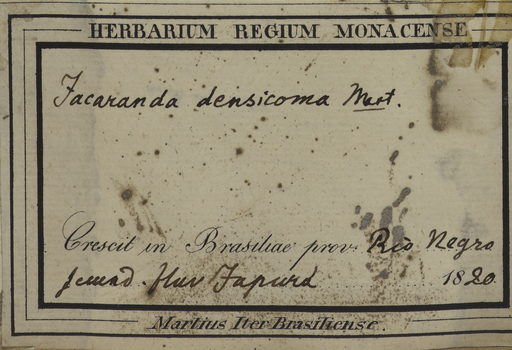 HERBARIUM REGIUM MONACENSE
Jacaranda densicoma Mart.
Crescit in Brasiliae prov. Rio Negro
secund. fluv Japurá 1820
Martius Iter Brasiliense.